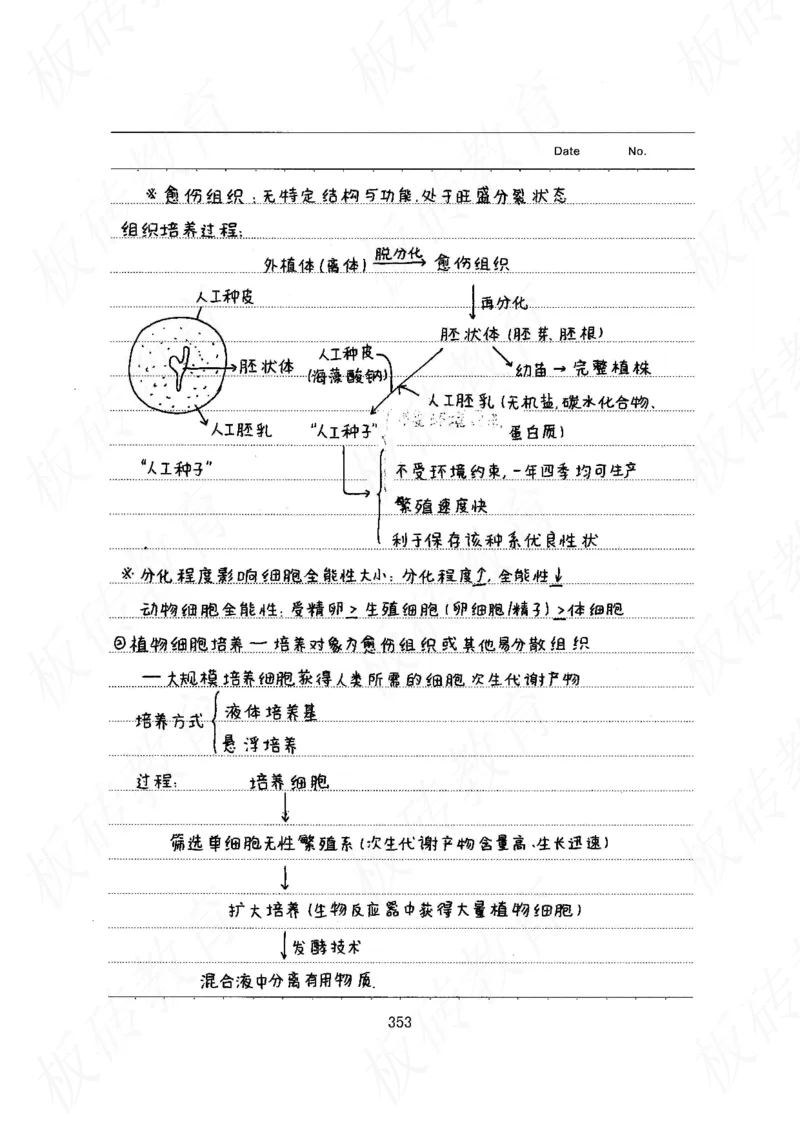 Date No.
※ 愈伤组织：无特定结构与功能，处于旺盛分裂状态
组织培养过程：
外植体(离体) 脱分化 愈伤组织
人工种皮
再分化
胚状体 (胚芽、胚根)
胚状体
人工种皮
(海藻酸钠)
幼苗→完整植株
人工胚乳 (无机盐，碳水化合物、
蛋白质)
人工胚乳
"人工种子"
"人工种子"
不受环境约束，一年四季均可生产
繁殖速度快
利于保存该种系优良性状
※ 分化程度影响细胞全能性大小：分化程度↑，全能性↓
动物细胞全能性：受精卵 > 生殖细胞 (卵细胞/精子) > 体细胞
②植物细胞培养 — 培养对象为愈伤组织或其他易分散组织
— 大规模培养细胞获得人类所需的细胞次生代谢产物
培养方式
液体培养基
悬浮培养
过程：
培养细胞
筛选单细胞无性繁殖系 (次生代谢产物含量高、生长迅速)
扩大培养 (生物反应器中获得大量植物细胞)
发酵技术
混合液中分离有用物质.
353
板砖教育